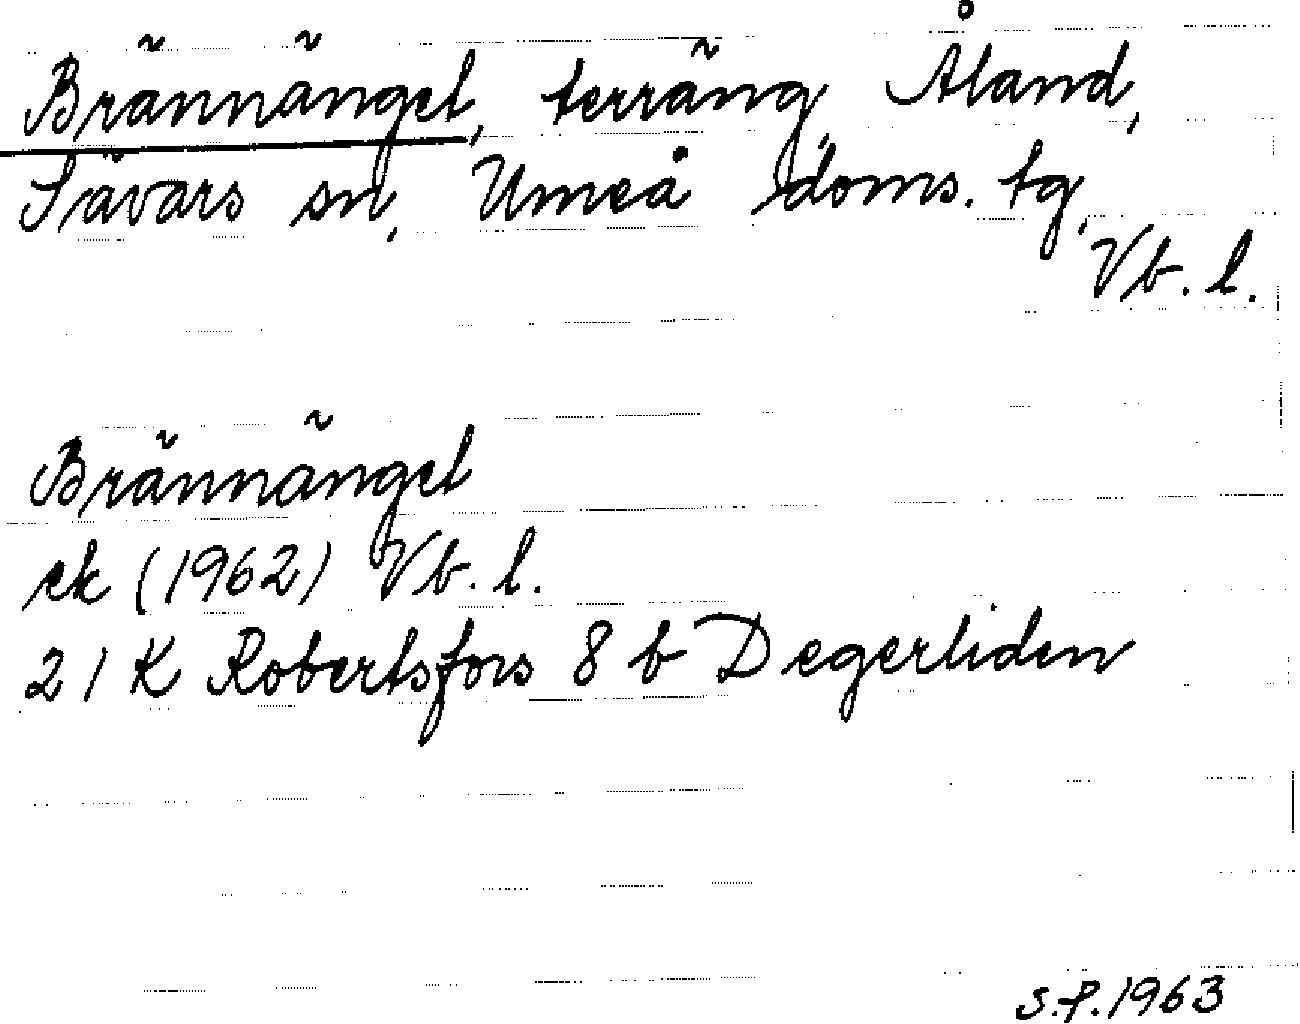 Brännängel, terräng, Åland,
Sävars sn, Umeå doms. tg,
Vb. l.
Brännängel
ek (1962) Vb. l.
21 K Robertsfors 8 b Degerliden
S.P. 1963